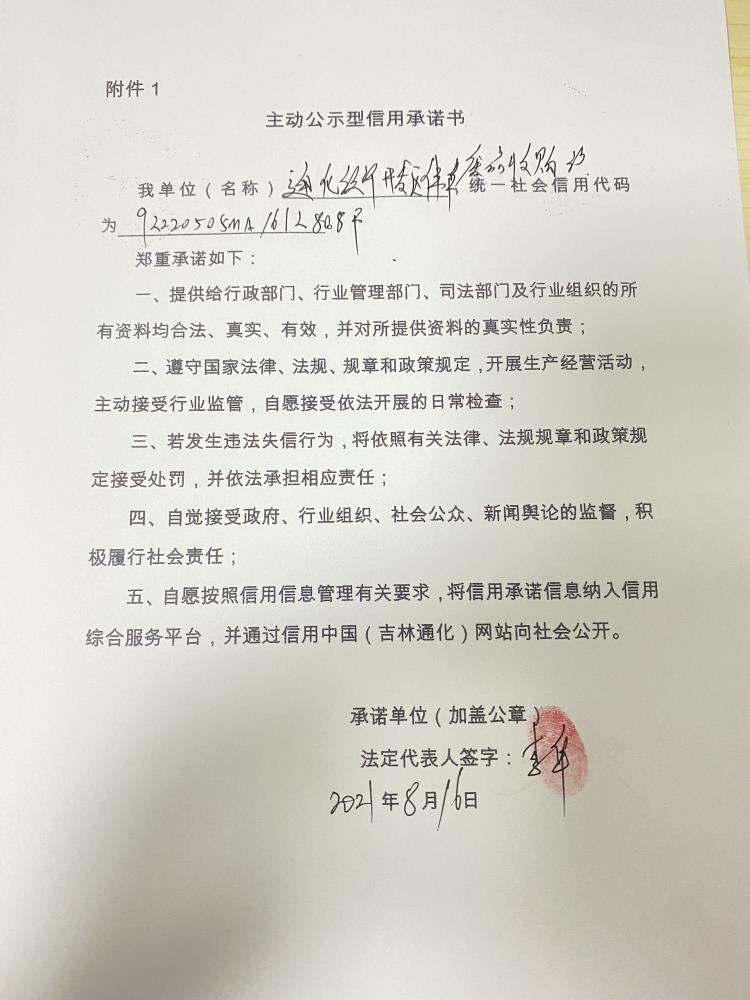 附件 1
主动公示型信用承诺书
我单位（名称）通化经开发区 收购 统一社会信用代码
为 92220505MA161L808
郑重承诺如下：
一、提供给行政部门、行业管理部门、司法部门及行业组织的所
有资料均合法、真实、有效，并对所提供资料的真实性负责；
二、遵守国家法律、法规、规章和政策规定，开展生产经营活动，
主动接受行业监管，自愿接受依法开展的日常检查；
三、若发生违法失信行为，将依照有关法律、法规规章和政策规
定接受处罚，并依法承担相应责任；
四、自觉接受政府、行业组织、社会公众、新闻舆论的监督，积
极履行社会责任；
五、自愿按照信用信息管理有关要求，将信用承诺信息纳入信用
综合服务平台，并通过信用中国（吉林通化）网站向社会公开。
承诺单位（加盖公章）
法定代表人签字：
2021年8月16日